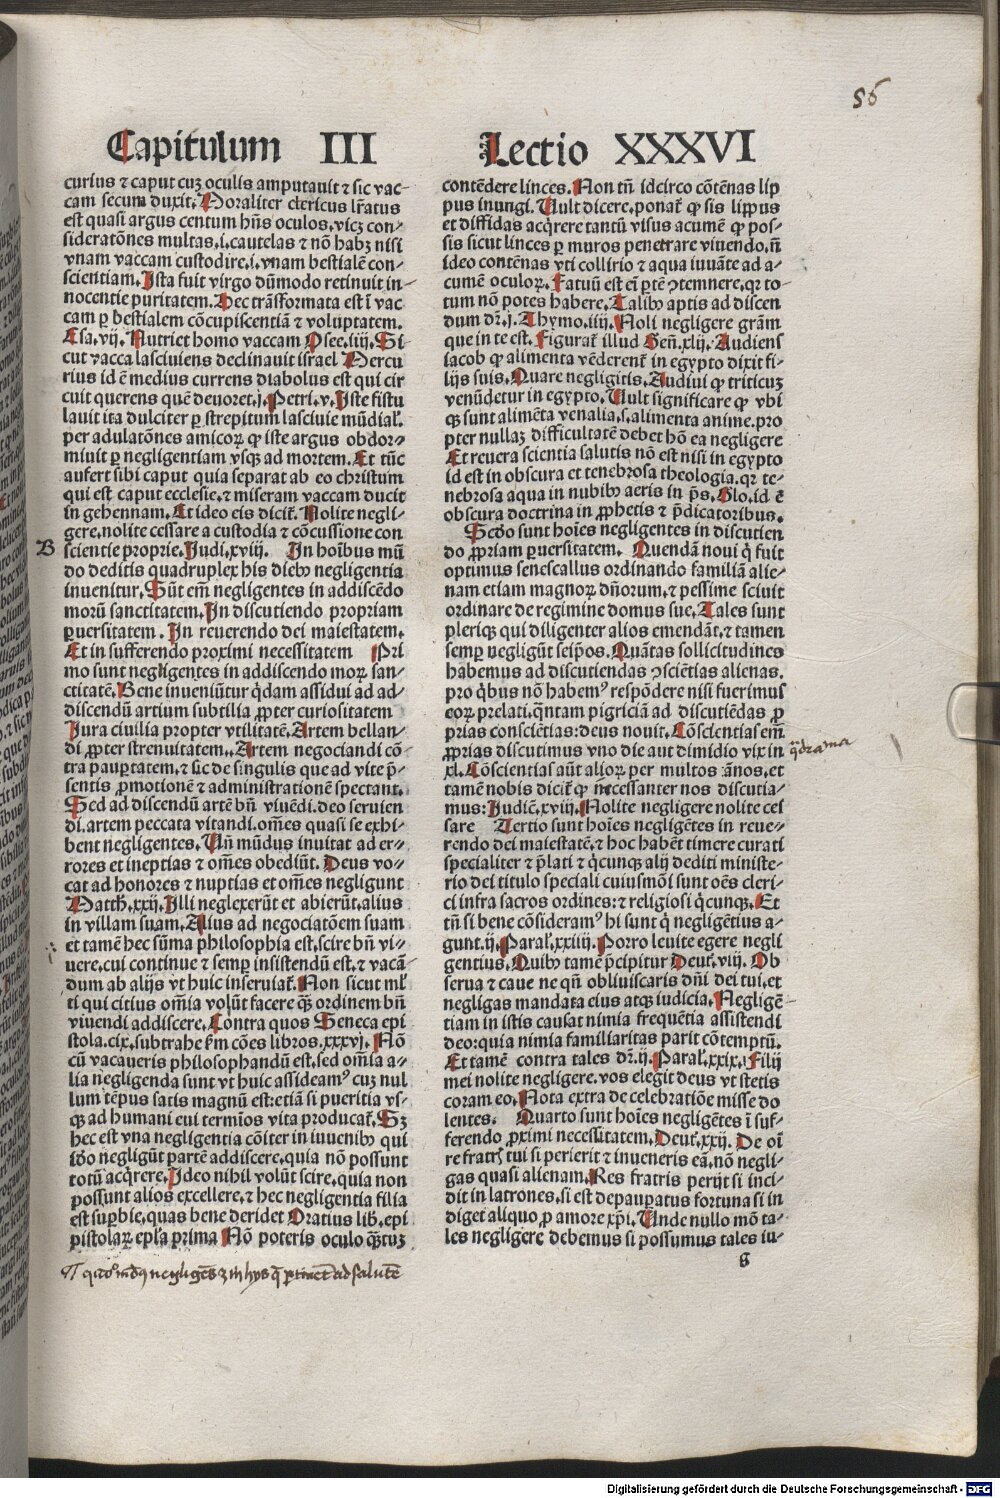 56
Capitulum III
curius ⁊ caput cuꝫ oculis amputauit ⁊ sic vac-
cam secum duxit. Moraliter clericus lr̄atus
est quasi argus centum hn̄s oculos, vicꝫ con-
sideratōnes multas .i. cautelas ⁊ nō habꝫ nisi
vnam vaccam custodire .i. vnam bestialē con-
scientiam. Ista fuit virgo dūmodo retinuit in-
nocentie puritatem. Hec trāsformata est ī vac
cam ꝑ bestialem cōcupiscentiā ⁊ voluptatem.
Esa. vij. Nutriet homo vaccam Osee. iiij. Si
cut vacca lasciuiens declinauit israel Mercu
rius id ē medius currens diabolus est qui cir
cuit querens quē deuoret. j. Petri. v. Iste fistu
lauit ita dulciter ꝑ strepitum lasciuie mūdial̓.
per adulatōnes amicoꝝ ꝙ iste argus obdor-
miuit ꝑ negligentiam vsqꝫ ad mortem. Et tūc
aufert sibi caput quia separat ab eo christum
qui est caput ecclesie, ⁊ miseram vaccam ducit
in gehennam. Et ideo eis dicit̄. Nolite negli-
gere, nolite cessare a custodia ⁊ cōcussione con
B scientie proprie. Judi. xviij. In hoībus mū
do deditis quadruplex his diebꝫ negligentia
inuenitur. Sūt em̄ negligentes in addiscēdo
morū sanctitatem. In discutiendo propriam
ꝑuersitatem. In reuerendo dei maiestatem.
Et in sufferendo proximi necessitatem Pri
mo sunt negligentes in addiscendo moꝝ san-
ctitatē. Bene inueniūtur q̇dam assidui ad ad-
discendū artium subtilia ꝓpter curiositatem
Jura ciuilia propter vtilitatē. Artem bellan-
di ꝓpter strenuitatem. Artem negociandi cō-
tra pauꝑtatem, ⁊ sic de singulis que ad vite p̄-
sentis ꝓmotionē ⁊ administrationē spectant.
Sed ad discendū artē bn̄ viuēdi. deo seruien
di. artem peccata vitandi. om̄es quasi se exhi-
bent negligentes. Vn̄ mūdus inuitat ad er-
rores et ineptias ⁊ om̄es obediūt. Deus vo-
cat ad honores ⁊ nuptias et om̄es negligunt
Matth. xxij. Illi neglexerūt et abierūt, alius
in villam suam. Alius ad negociatōem suam
et tamē hec sūma philosophia est, scire bn̄ vi-
uere, cui continue ⁊ semꝑ insistendū est, ⁊ vacā
dum ab alijs vt huic inseruiat̄. Non sicut ml̓
ti qui citius om̄ia volūt facere qꝫ̄ ordinem bn̄
viuendi addiscere. Contra quos Seneca epi
stola. cix. subtrahe km̄ cōes libros. xxxvj. Nō
cū vacaueris philosophandū est, sed om̄ia a-
lia negligenda sunt vt huic assideamꝰ cuꝫ nul
lum tēpus satis magnū est: etiā si pueritia vs-
qꝫ ad humani eui termīos vita producat̄. Sꝫ
hec est vna negligentia cōiter in iuuenibꝫ qui
id̓o negligūt partē addiscere, quia nō possunt
totū acq̇rere. Ideo nihil volūt scire, quia non
possunt alios excellere, ⁊ hec negligentia filia
est suꝑbie, quas bene deridet Oratius lib. epi
pistolaꝝ epl̓a prima Nō poteris oculo qꝫ̄tuꝫ
¶ quo mōs negligēs ꝫ in hys q̄ ꝑtinēt ad salutē
Lectio XXXVI
contēdere linces. Non tn̄ idcirco cōtēnas lip
pus inungi. Vult dicere, ponat̄ ꝙ sis lippus
et diffidas acq̇rere tantū visus acumē ꝙ pos-
sis sicut linces ꝑ muros penetrare viuendo, n̄
ideo contēnas vti collirio ⁊ aqua iuuāte ad a-
cumē oculoꝝ. Fatuū est em̄ ꝑtē ꝯtemnere, qꝛ to-
tum nō potes habere. Talibꝫ aptis ad discen
dum dr̄. j. Thymo. iiij. Noli negligere grām
que in te est. Figurat̄ illud Gen̄. xlij. Audiens
iacob ꝙ alimenta vēderent̄ in egypto dixit fi-
lijs suis. Quare negligitis. Audiui ꝙ triticuꝫ
venūdetur in egypto. Vult significare ꝙ vbi
qꝫ sunt alimēta venalia, s. alimenta anime. pro
pter nullaꝫ difficultatē debet hō ea negligere
Et reuera scientia salutis nō est nisi in egypto
id est in obscura et tenebrosa theologia. qꝛ te-
nebrosa aqua in nubibꝫ aeris in p̄s. Glo. id ē
obscura doctrina in ꝓphetis ⁊ p̄dicatoribus.
Scd̓o sunt hoīes negligentes in discutien
do ꝓpriam ꝑuersitatem. Quendā noui q̇ fuit
optimus senescallus ordinando familiā alie-
nam etiam magnoꝝ dn̄orum, ⁊ pessime sciuit
ordinare de regimine domus sue. Tales sunt
pleriqꝫ qui diligenter alios emendāt, ⁊ tamen
semꝑ negligūt seip̄os. Quātas sollicitudines
habemus ad discutiendas ꝯsciētias alienas.
pro q̇bus nō habemꝰ respōdere nisi fuerimus
eoꝝ prelati. q̄ntam pigriciā ad discutiēdas ꝓ
prias consciētias: deus nouit. Cōscientias em̄
ꝓprias discutimus vno die aut dimidio vix in
q̄drama
xl. Cōscientias aūt alioꝝ per multos ānos. et
tamē nobis dicit̄ ꝙ necessanter nos discutia-
mus: Judic̄. xviij. Nolite negligere nolite ces
sare Tertio sunt hoīes negligētes in reue-
rendo dei maiestatē, ⁊ hoc habēt timere curati
specialiter ⁊ p̄lati ⁊ q̇cunqꝫ alij dediti ministe-
rio dei titulo speciali cuiusmōi sunt oēs cleri-
ci infra sacros ordines: ⁊ religiosi q̇cunqꝫ. Et
tn̄ si bene cōsideramꝰ hi sunt q̇ negligētius a-
gunt. ij. Paral̓. xxiiij. Porro leuite egere negli
gentius. Quibꝫ tamē p̄cipitur Deut̄. viij. Ob
serua ⁊ caue ne qn̄ obliuiscaris dn̄i dei tui, et
negligas mandata eius atqꝫ iudicia. Negligē-
tiam in istis causat nimia frequētia assistendi
deo: quia nimia familiaritas parit cōtemptū.
Et tamē contra tales dr̄. ij. Paral̓. xxix. Filij
mei nolite negligere. vos elegit deus vt stetis
coram eo. Nota extra de celebratiōe misse do
lentes. Quarto sunt hoīes negligētes ī suf-
ferendo ꝓximi necessitatem. Deut̄. xxij. De oī
re fratrī tui si perierit ⁊ inueneris eā, nō negli-
gas quasi alienam. Res fratris perijt si inci-
dit in latrones, si est depauꝑatus fortuna si in
diget aliquo ꝓ amore xp̄i. Vnde nullo mō ta-
les negligere debemus si possumus tales iu-
g
Digitalisierung gefördert durch die Deutsche Forschungsgemeinschaft - DFG